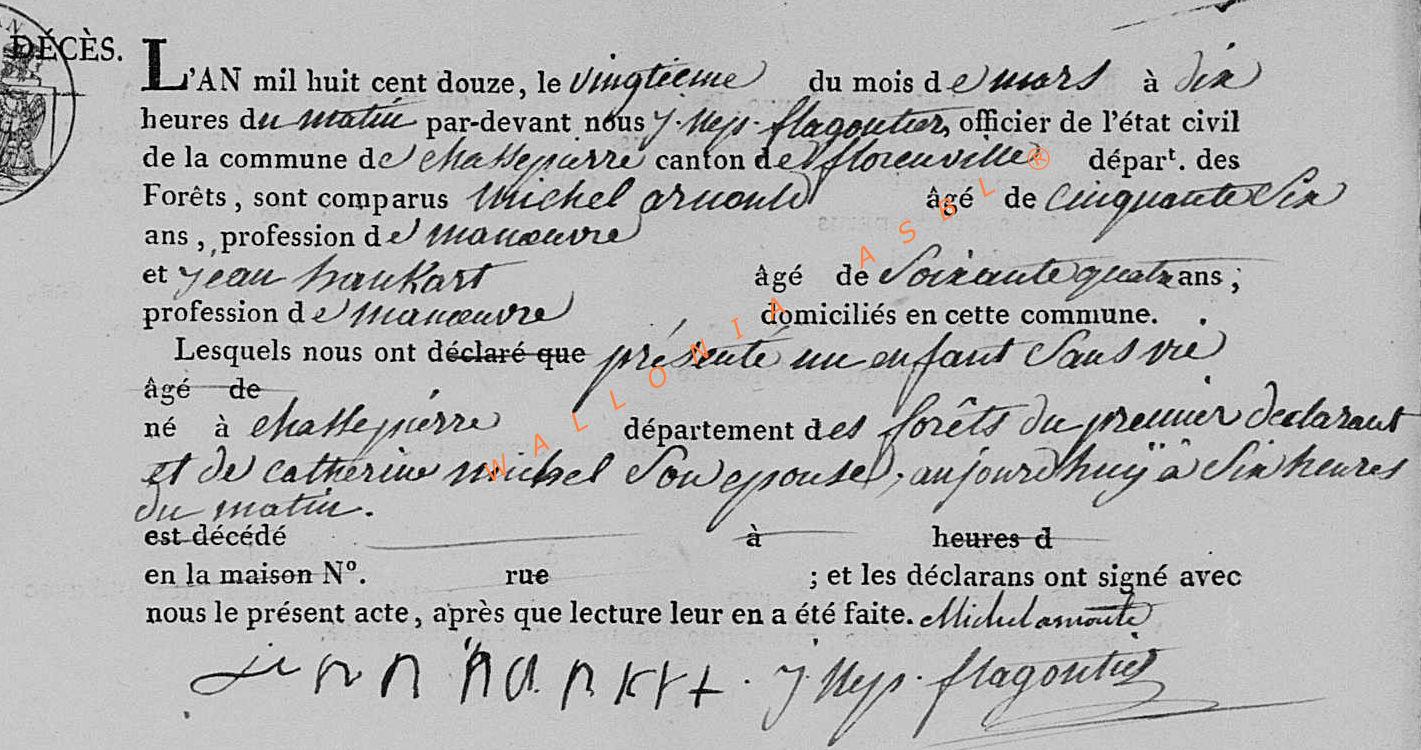 DÉCÈS.
L'AN mil huit cent douze, le vingtieme du mois de mars à dix
heures du matin par-devant nous J. Nep. flagontier, officier de l'état civil
de la commune de chassepierre canton de florenville départ. des
Forêts, sont comparus Michel arnould âgé de cinquante Six
ans, profession de manœuvre
et jean hankart âgé de Soixante quatre ans;
profession de manœuvre domiciliés en cette commune.
Lesquels nous ont déclaré que présenté un enfant Sans vie
âgé de
né à chassepierre département des forêts du premier declarant
et de catherine michel Son epouse, aujourdhuÿ à Six heures
du matin.
est décédé à heures d
en la maison N°. rue ; et les déclarans ont signé avec
nous le présent acte, après que lecture leur en a été faite. Michel
jean hankart J. Nep. flagontier
WALLONIA ASBL ®